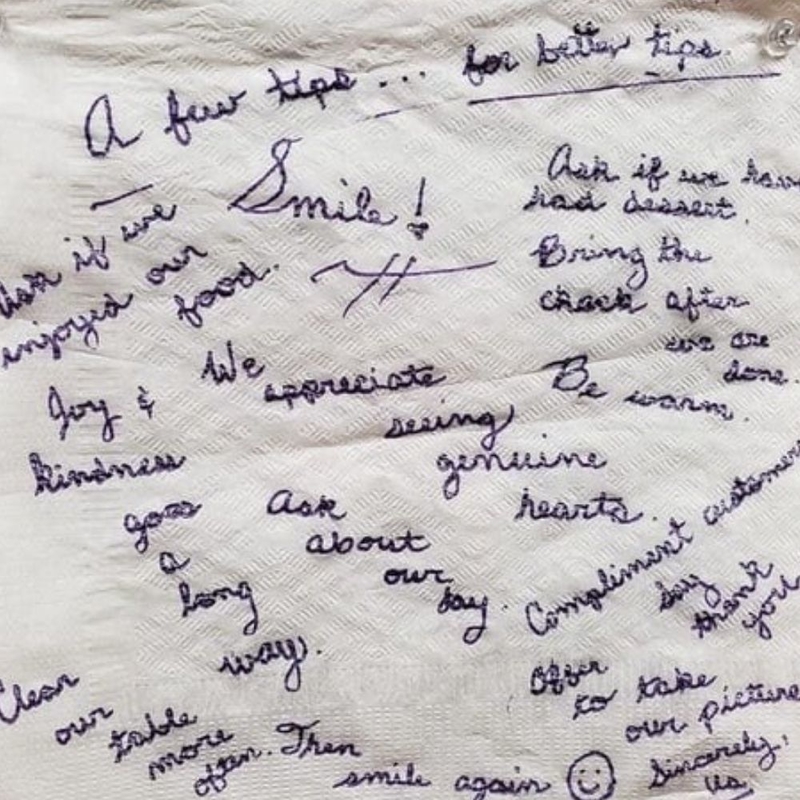 A few tips... for better tips.
Smile!
Ask if we
enjoyed our
food.
Ask if we have
had dessert.
Bring the
check after
we are
done.
Be warm.
We
appreciate
seeing
genuine
hearts.
Joy &
kindness
goes
a
long
way.
Ask
about
our
day.
Compliment customers
Say
thank
you
Offer
to take
our picture
Clear
our
table
more
often. Then
smile again
Sincerely,
Us